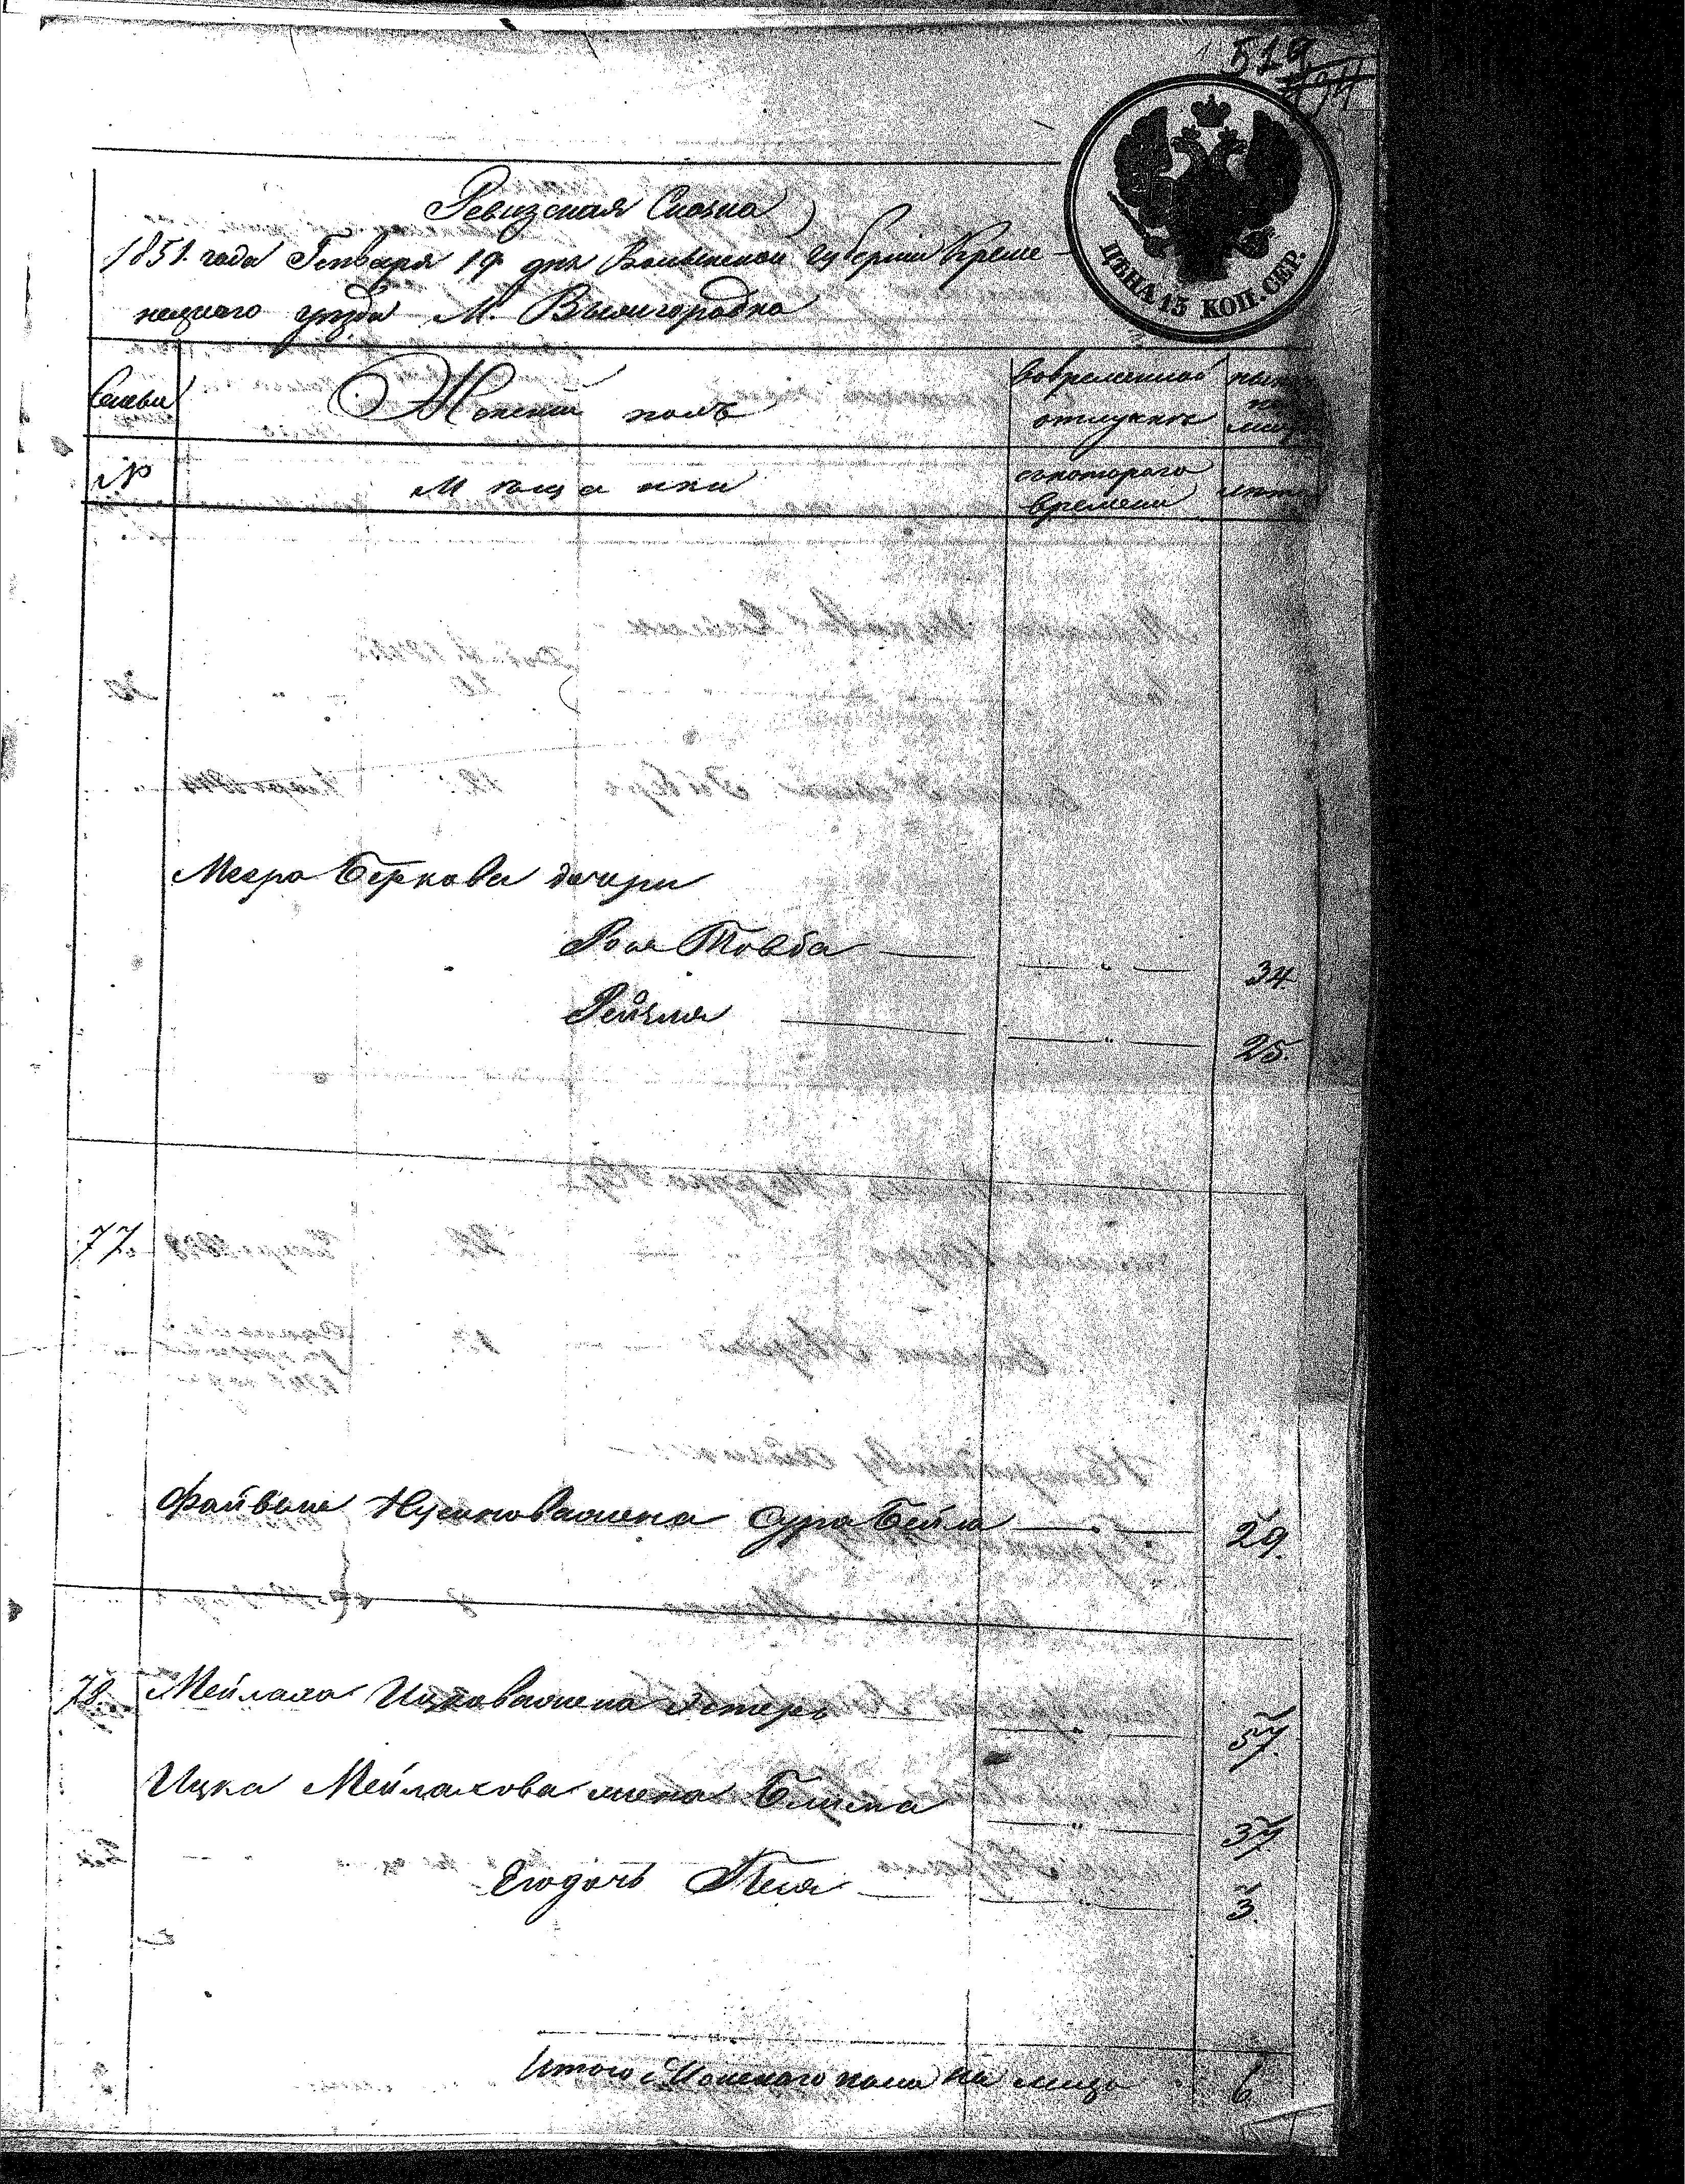 519
494
ЦѢНА 15 КОП. СЕР.
Ревизская Сказка
1851 года Генваря 19 дня Волынской губерніи Креме-
нецкаго уѣзда М. Вышгородка
Семьи
Женскій полъ
Во временной отлучкѣ
ныне на лицо
№
Мѣщанки
съ котораго времени
лѣта
Меера Беркова дочери
Роза Товба — " — 34
Рейзля — " — 25.
77.
Файвеля Нусинова жена Сура Бейла — " — 29.
78. Мейлаха Ицкова жена Эстеръ — " — 57.
Ицка Мейлахова жена Блима — " — 37.
Его дочь Песя — " — 3.
Итого Женскаго пола на лицо 6